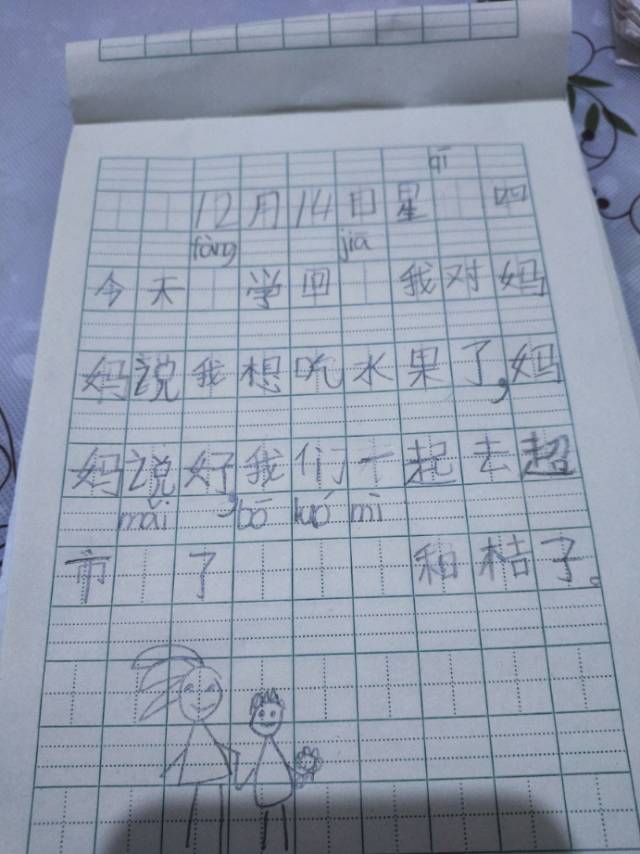 qī
12月14日星 四
fàng jiā
今天 学回 我对妈
妈说我想吃水果了,妈
妈说好,我们一起去超
mǎi bō luó mì
市 了 和桔子。